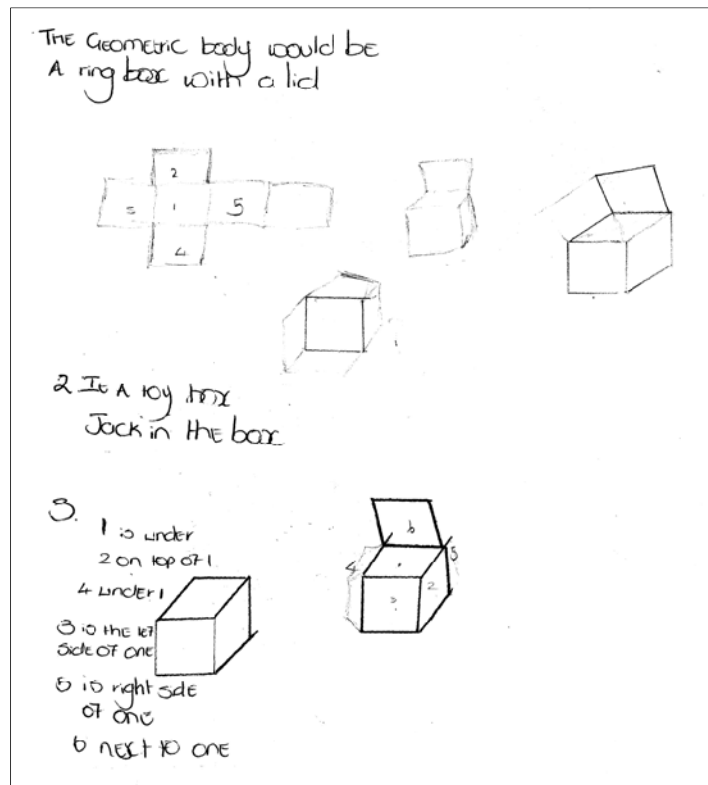 THE Geometric body would be
A ring box with a lid
2
3 1 5
4
2 It A toy box
Jack in THE box
3.
1 is under
2 on top of 1
4 under 1
3 is the left
side of one
5 is right side
of one
6 next to one
6
4 1 5
3 2